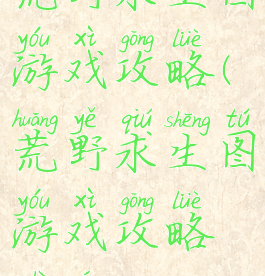 yóu xì gōng lüè
游戏攻略(
huāng yě qiú shēng tú
荒野求生图
yóu xì gōng lüè
游戏攻略